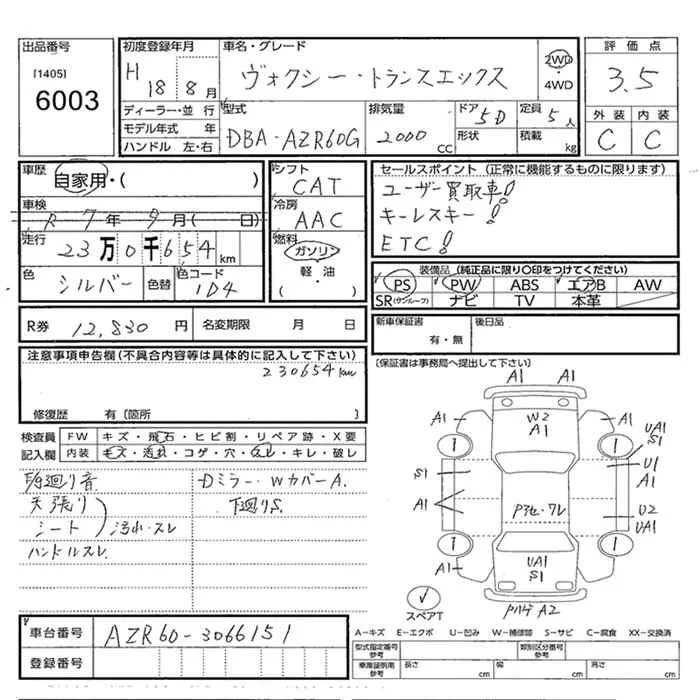 出品番号
[1405]
6003
初度登録年月
H 18年 8月
車名・グレード
ヴォクシー・トランスエックス
2WD
・
4WD
評価点
3.5
外装 内装
C C
ディーラー・並行
モデル年式 年
ハンドル 左・右
型式
DBA-AZR60G
排気量
2000 CC
ドア 5D
形状
定員 5人
積載 kg
車歴
自家用・( )
車検
R 7年 9月( 日)
走行
23万0千654km
色
シルバー
色替
色コード
1D4
シフト
CAT
冷房
AAC
燃料
ガソリン
軽・油
( )
セールスポイント (正常に機能するものに限ります)
ユーザー買取車!
キーレスキー!
ETC!
装備品 (純正品に限り○印をつけてください)
PS PW ABS エアB AW
SR(サンルーフ) ナビ TV 本革
R券 12,830 円 名変期限 月 日
新車保証書
有・無
後日品
注意事項申告欄(不具合内容等は具体的に記入して下さい)
230654km
修復歴 有〔箇所 〕
〔保証書は事務局へ提出して下さい〕
検査員 FW キズ・飛石・ヒビ割・リペア跡・X要
記入欄 内装 キズ・汚れ・コゲ・穴・スレ・キレ・破レ
廻り音
天張り
シート 汚れ・スレ
ハンドルスレ
Dミラー・WカバーA.
下廻りS.
A1 A1
W2
A1
A1 A1
1 1
UA1
S1
S1
U1
A1
A1
U2
UA1
1 1
A1 A1
UA1
S1
スペアT
A2
車台番号 AZR60-3066151
登録番号
A-キズ E-エクボ U-凹み W-補修跡 S-サビ C-腐食 XX-交換済
型式指定番号
参考
類別区分番号
参考
車庫証明用
参考
長さ cm 幅 cm 高さ cm